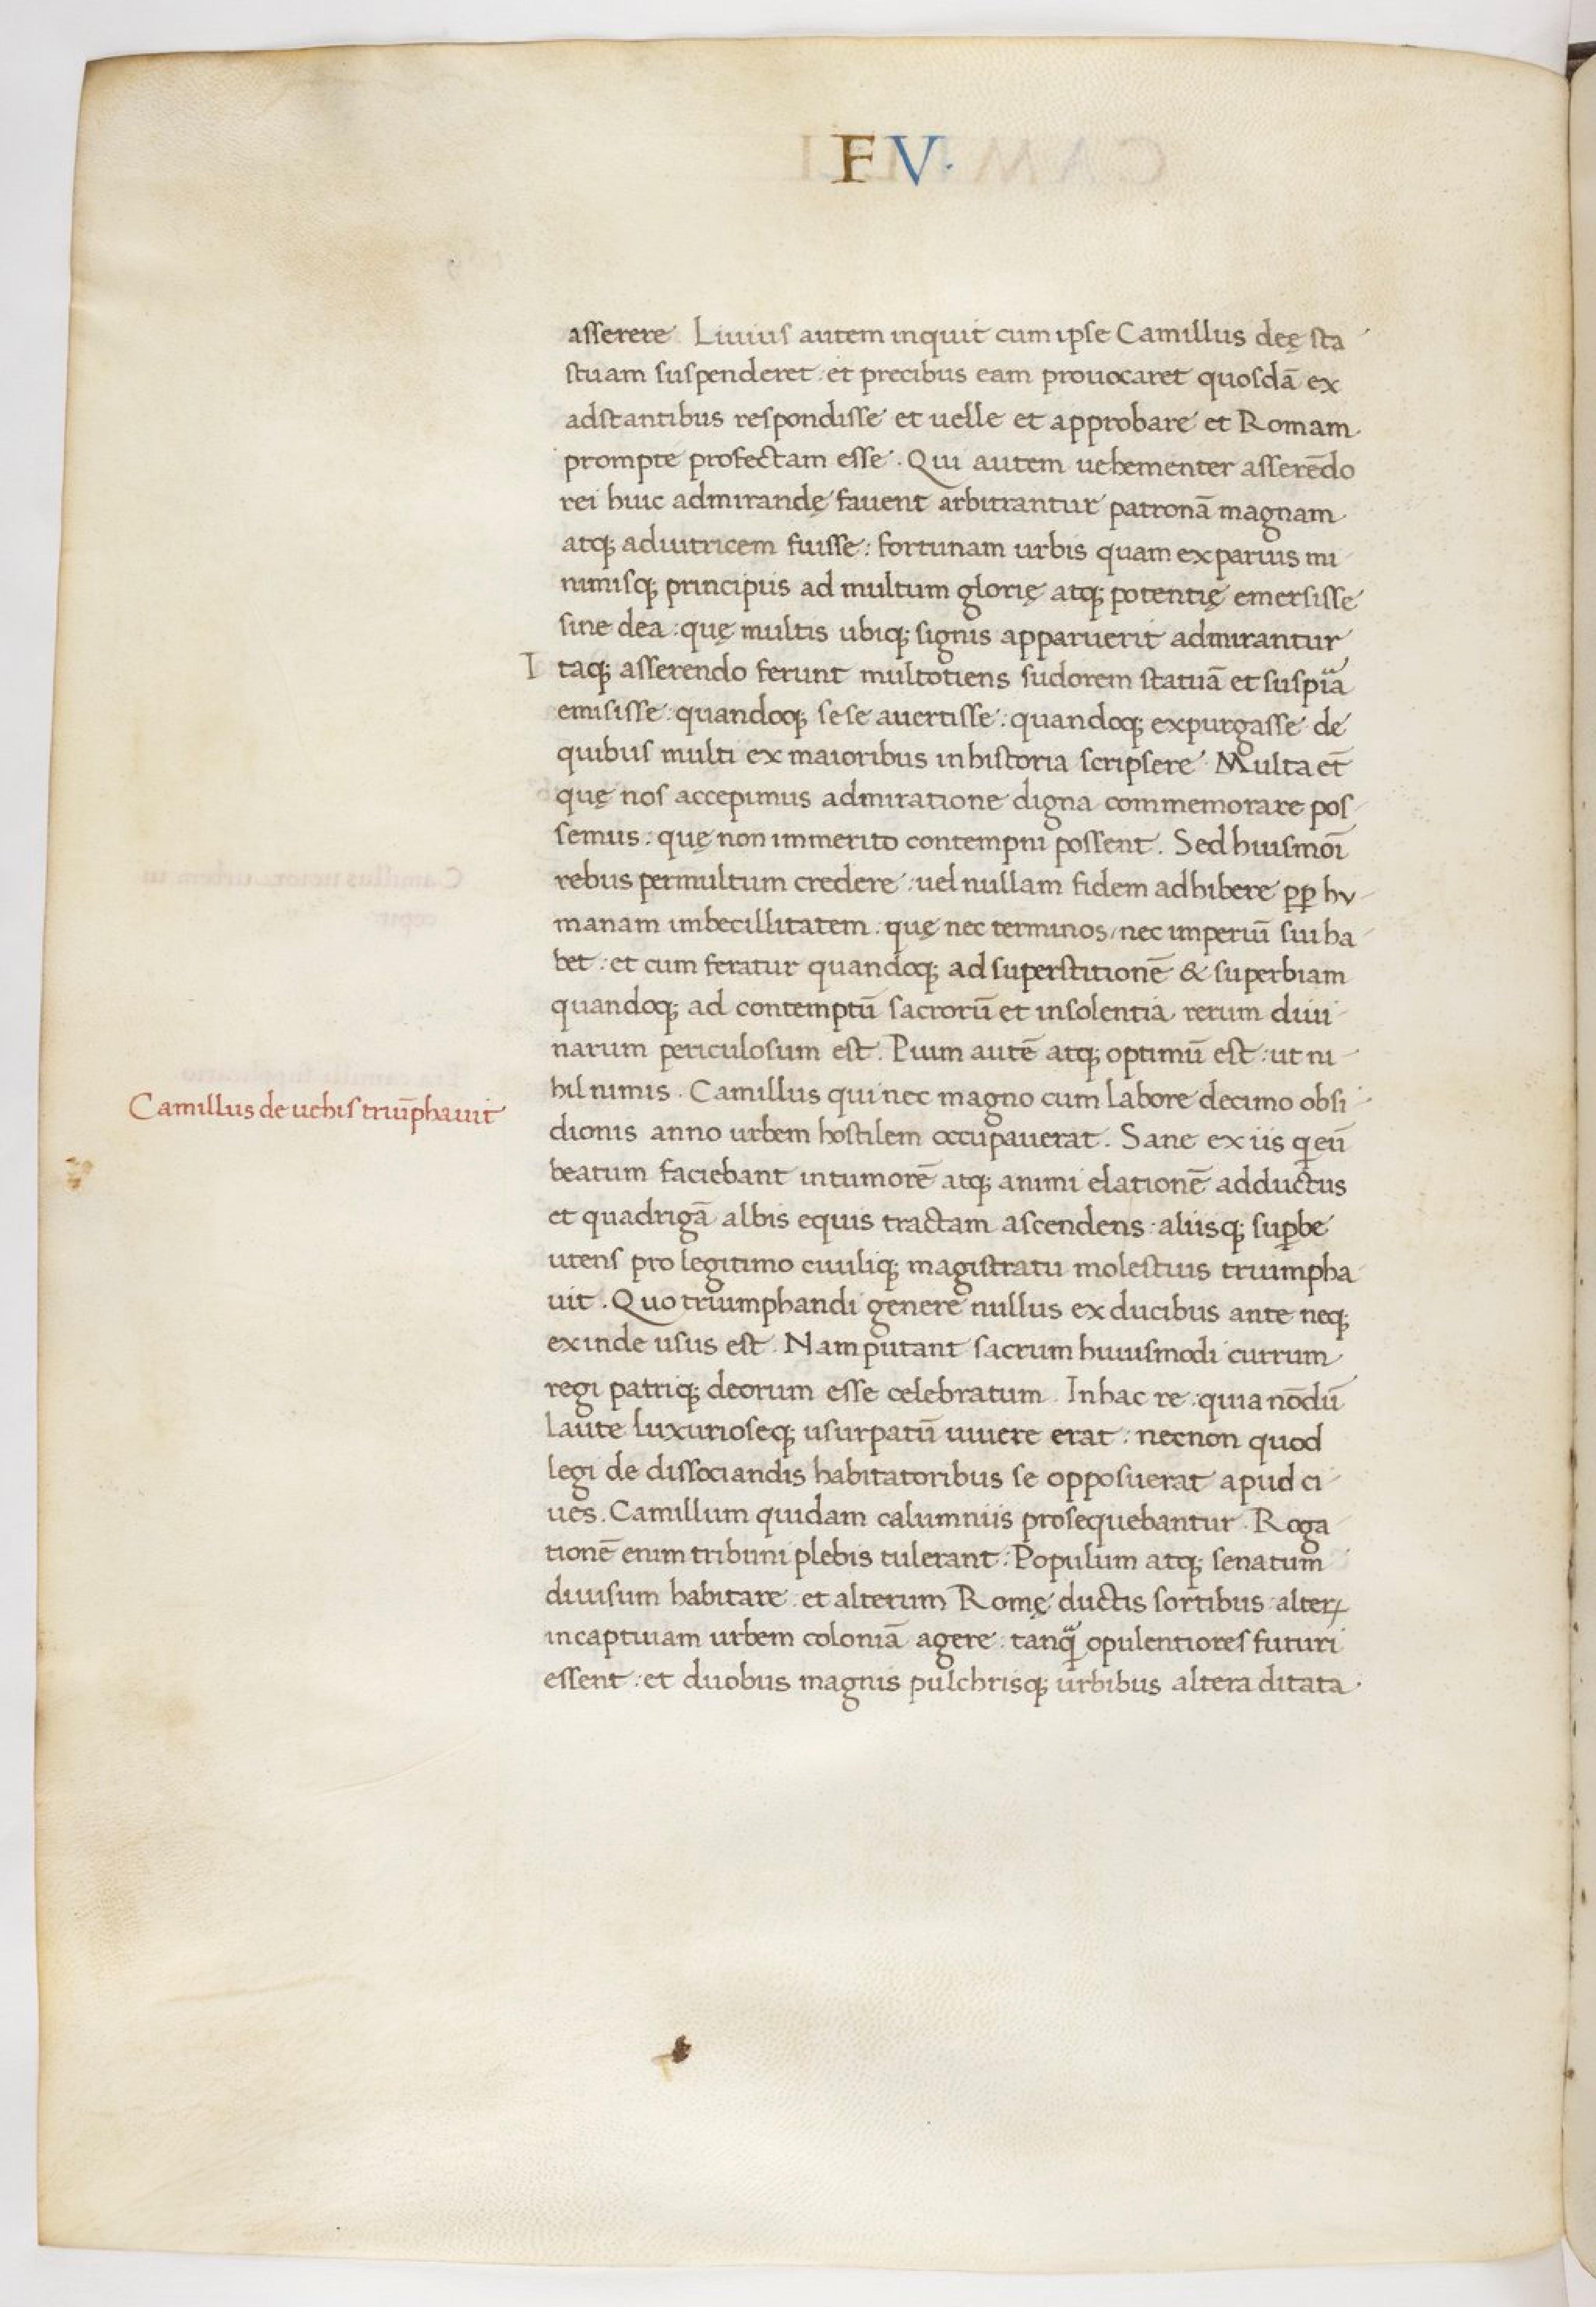 F V·
asserere. Liuius autem inquit cum ipse Camillus deę sta
stuam suspenderet: et precibus eam prouocaret quosdā ex
adstantibus respondisse et uelle et approbare et Romam
prompte profectam esse. Qui autem uehementer asserēdo
rei huic admirandę fauent arbitrantur patronā magnam
atq; adiutricem fuisse: fortunam urbis quam ex paruis mi
nimisq; principiis ad multum glorię atq; potentię emersisse
sine dea: quę multis ubiq; signis apparuerit admirantur
I taq; asserendo ferunt multotiens sudorem statuā et suspiᵃ
emisisse: quandoq; sese auertisse: quandoq; expurgasse de
quibus multi ex maioribus in historia scripsere. Multa et̄
quę nos accepimus admiratione digna commemorare pos
semus: quę non immerito contempni possent. Sed huiusmōi
rebus permultum credere: uel nullam fidem adhibere ꝓp hu
manam imbecillitatem: quę nec terminos/ nec imperiū sui ha
bet: et cum feratur quandoq; ad superstitionē & superbiam
quandoq; ad contemptū sacrorū et insolentiā rerum diui
narum periculosum est. Pium autē atq; optimū est: ut ni
hil nimis. Camillus qui nec magno cum labore decimo obsi
Camillus de uehis triūphauit
dionis anno urbem hostilem occupauerat. Sane ex iis q eū
beatum faciebant in tumorē atq; animi elationē adductus
et quadrigā albis equis tractam ascendens: aliisq; suꝑbe
utens pro legitimo ciuiliq; magistratu molestius triumpha
uit. Quo triumphandi genere nullus ex ducibus ante neq;
exinde usus est. Nam putant sacrum huiusmodi currum
regi patriq; deorum esse celebratum. In hac re: quia nōdū
laute luxurioseq; usurpatū uiuere erat: necnon quod
legi de dissociandis habitatoribus se opposuerat apud ci
ues. Camillum quidam calumniis prosequebantur. Roga
tionē enim tribuni plebis tulerant: Populum atq; senatum
diuisum habitare: et alterum Romę ductis sortibus: alterꝝ
in captiuam urbem coloniā agere: tanqᵃ opulentiores futuri
essent: et duobus magnis pulchrisq; urbibus altera ditata